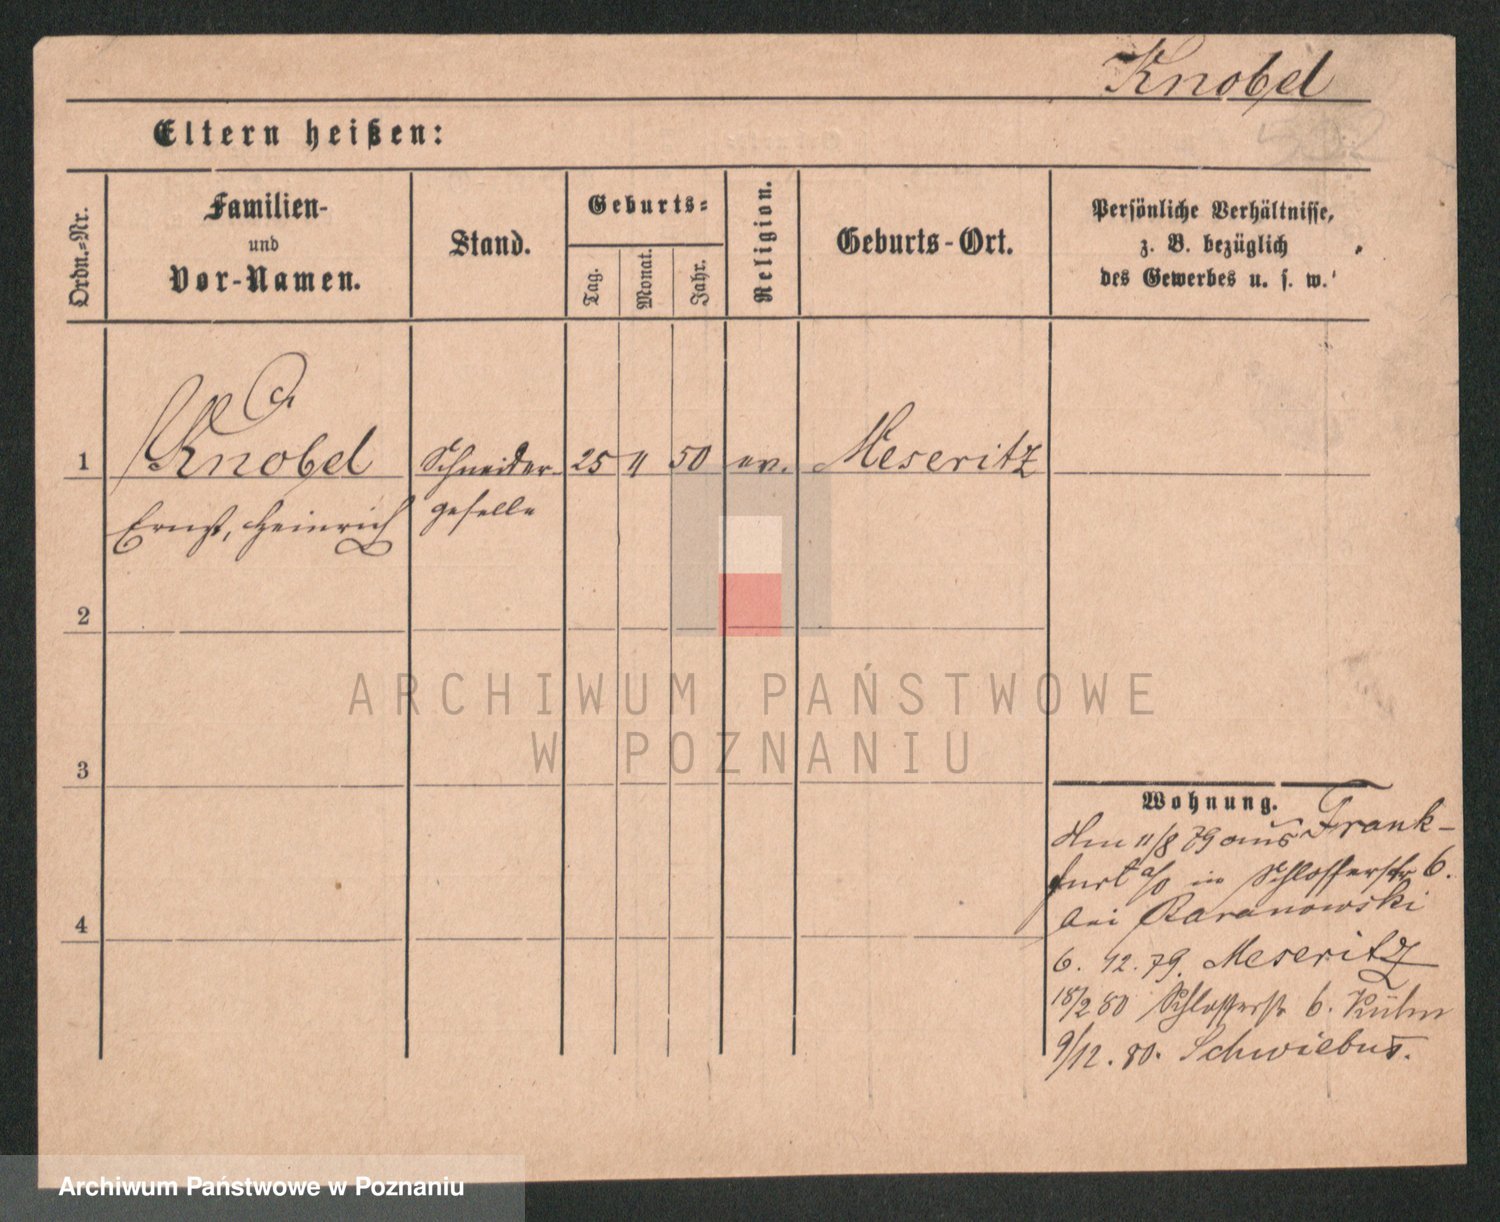 Knobel
Eltern heißen:
Ordn.-Nr.
Familien-
und
Vor-Namen.
Stand.
Geburts-
Tag.
Monat.
Jahr.
Religion.
Geburts-Ort.
Persönliche Verhältnisse,
z. B. bezüglich
des Gewerbes u. s. w.
1 Knobel Schneider- 25 11 50 ev. Meseritz
Ernst, Heinrich geselle
2
3
4
Wohnung.
Am 11/8 79 aus Frank-
furt a/O in Schlosserstr 6.
bei Baranowski
6. 12. 79. Meseritz
18/2 80 Schlosserstr 6. Kühn
9/12. 80. Schwiebus.
ARCHIWUM PAŃSTWOWE
W POZNANIU
Archiwum Państwowe w Poznaniu